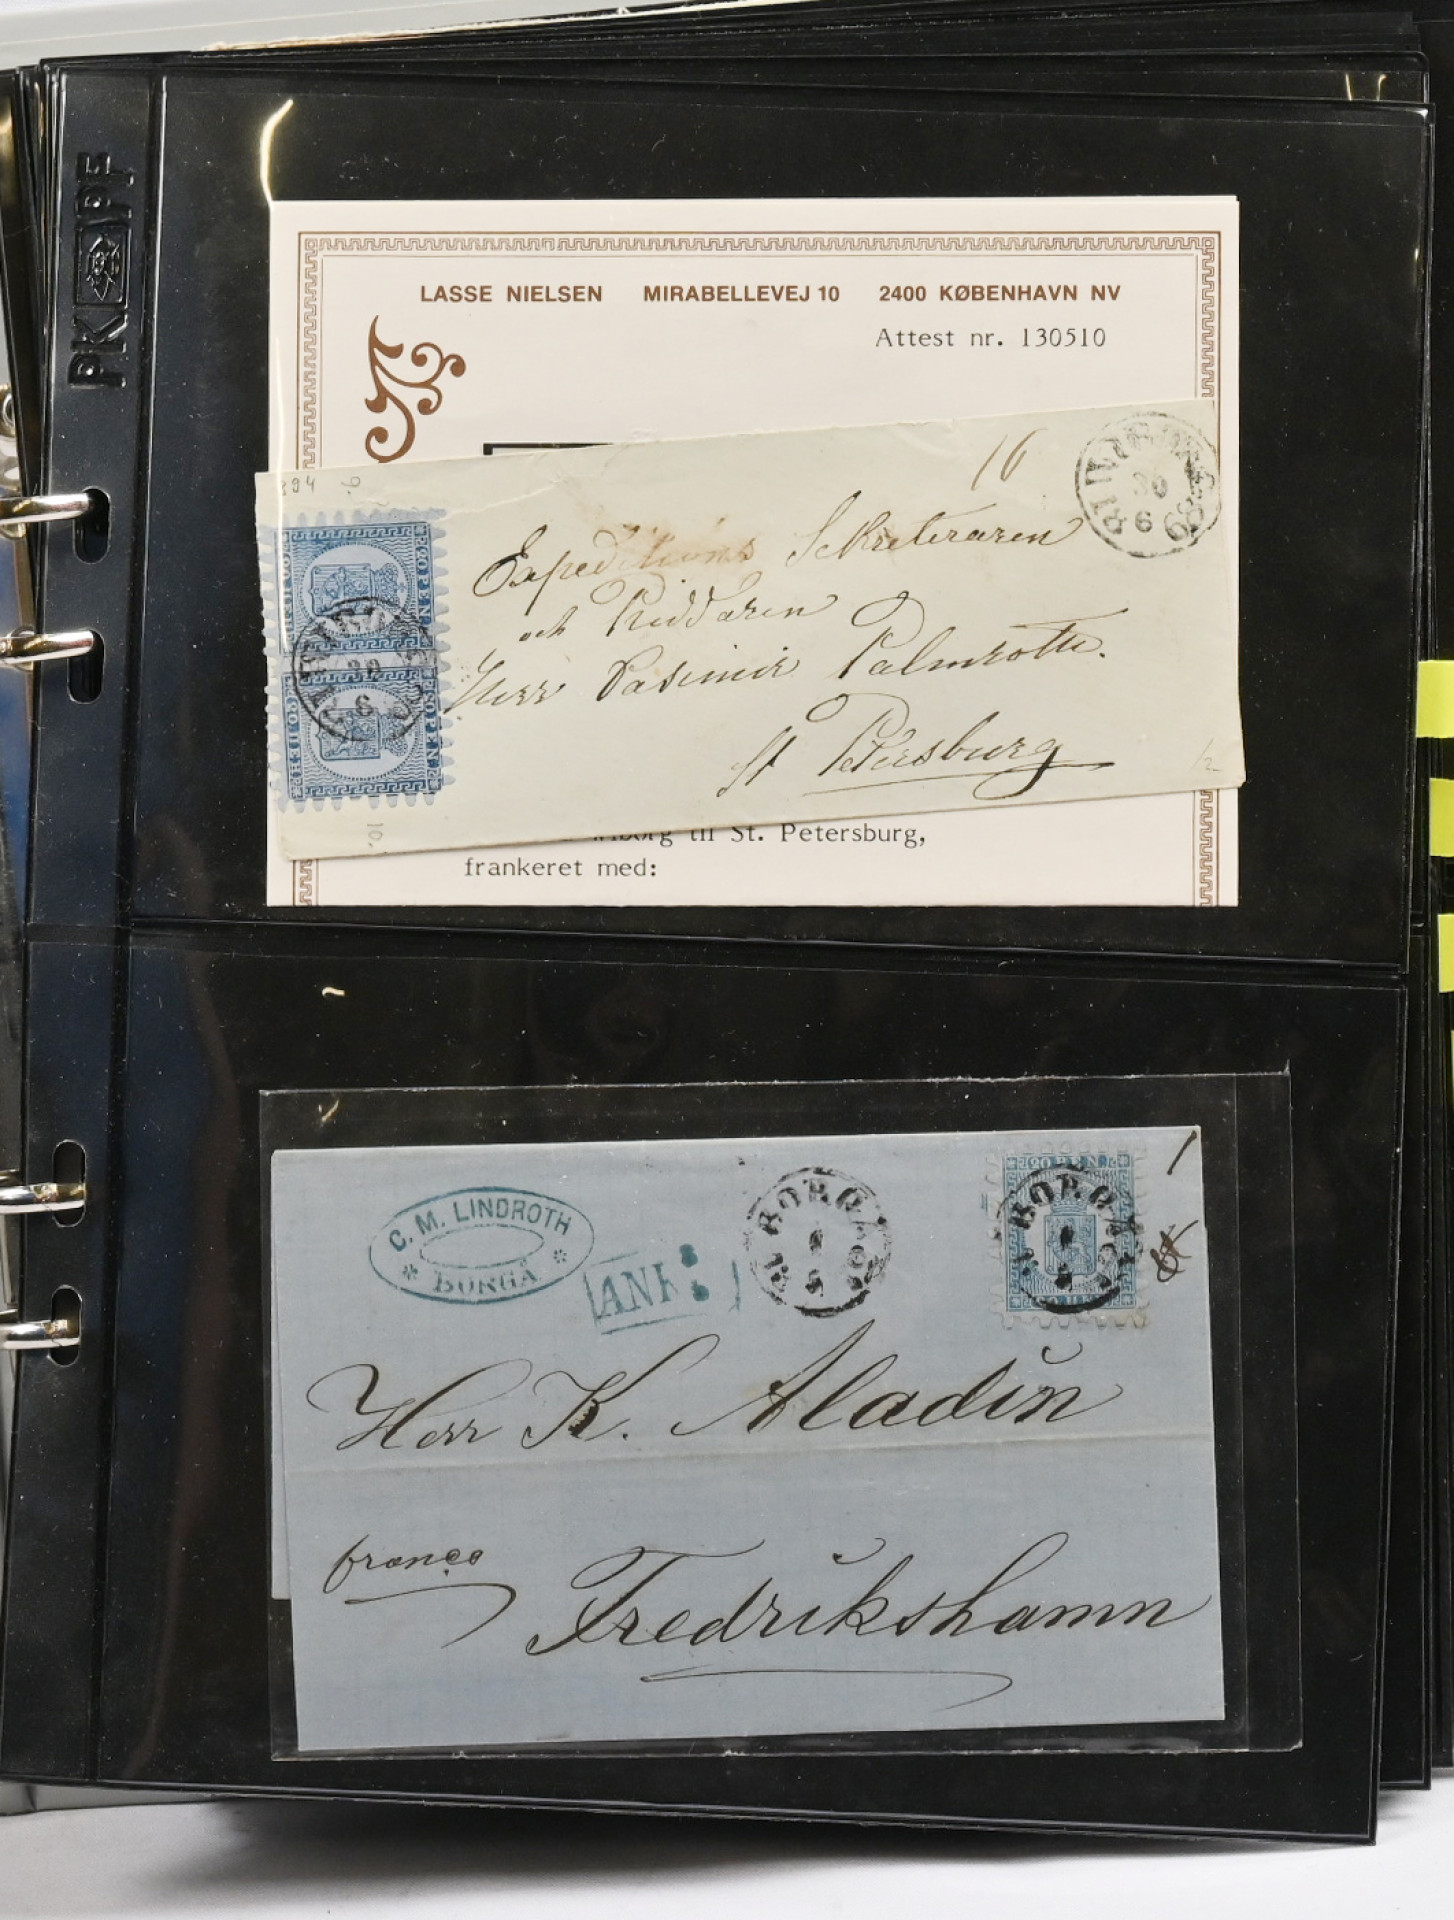 PK PF
LASSE NIELSEN MIRABELLEVEJ 10 2400 KØBENHAVN NV
Attest nr. 130510
16
30
6
Expeditions Sekreteraren
och Riddaren
Herr Casimir Palmroth.
St Petersburg
20 PEN
30
6
10.
til St. Petersburg,
frankeret med:
C. M. LINDROTH
BORGÅ
ANK
BORGÅ
20 PEN
BORGÅ
Herr K. Aladin
franco
Fredrikshamn